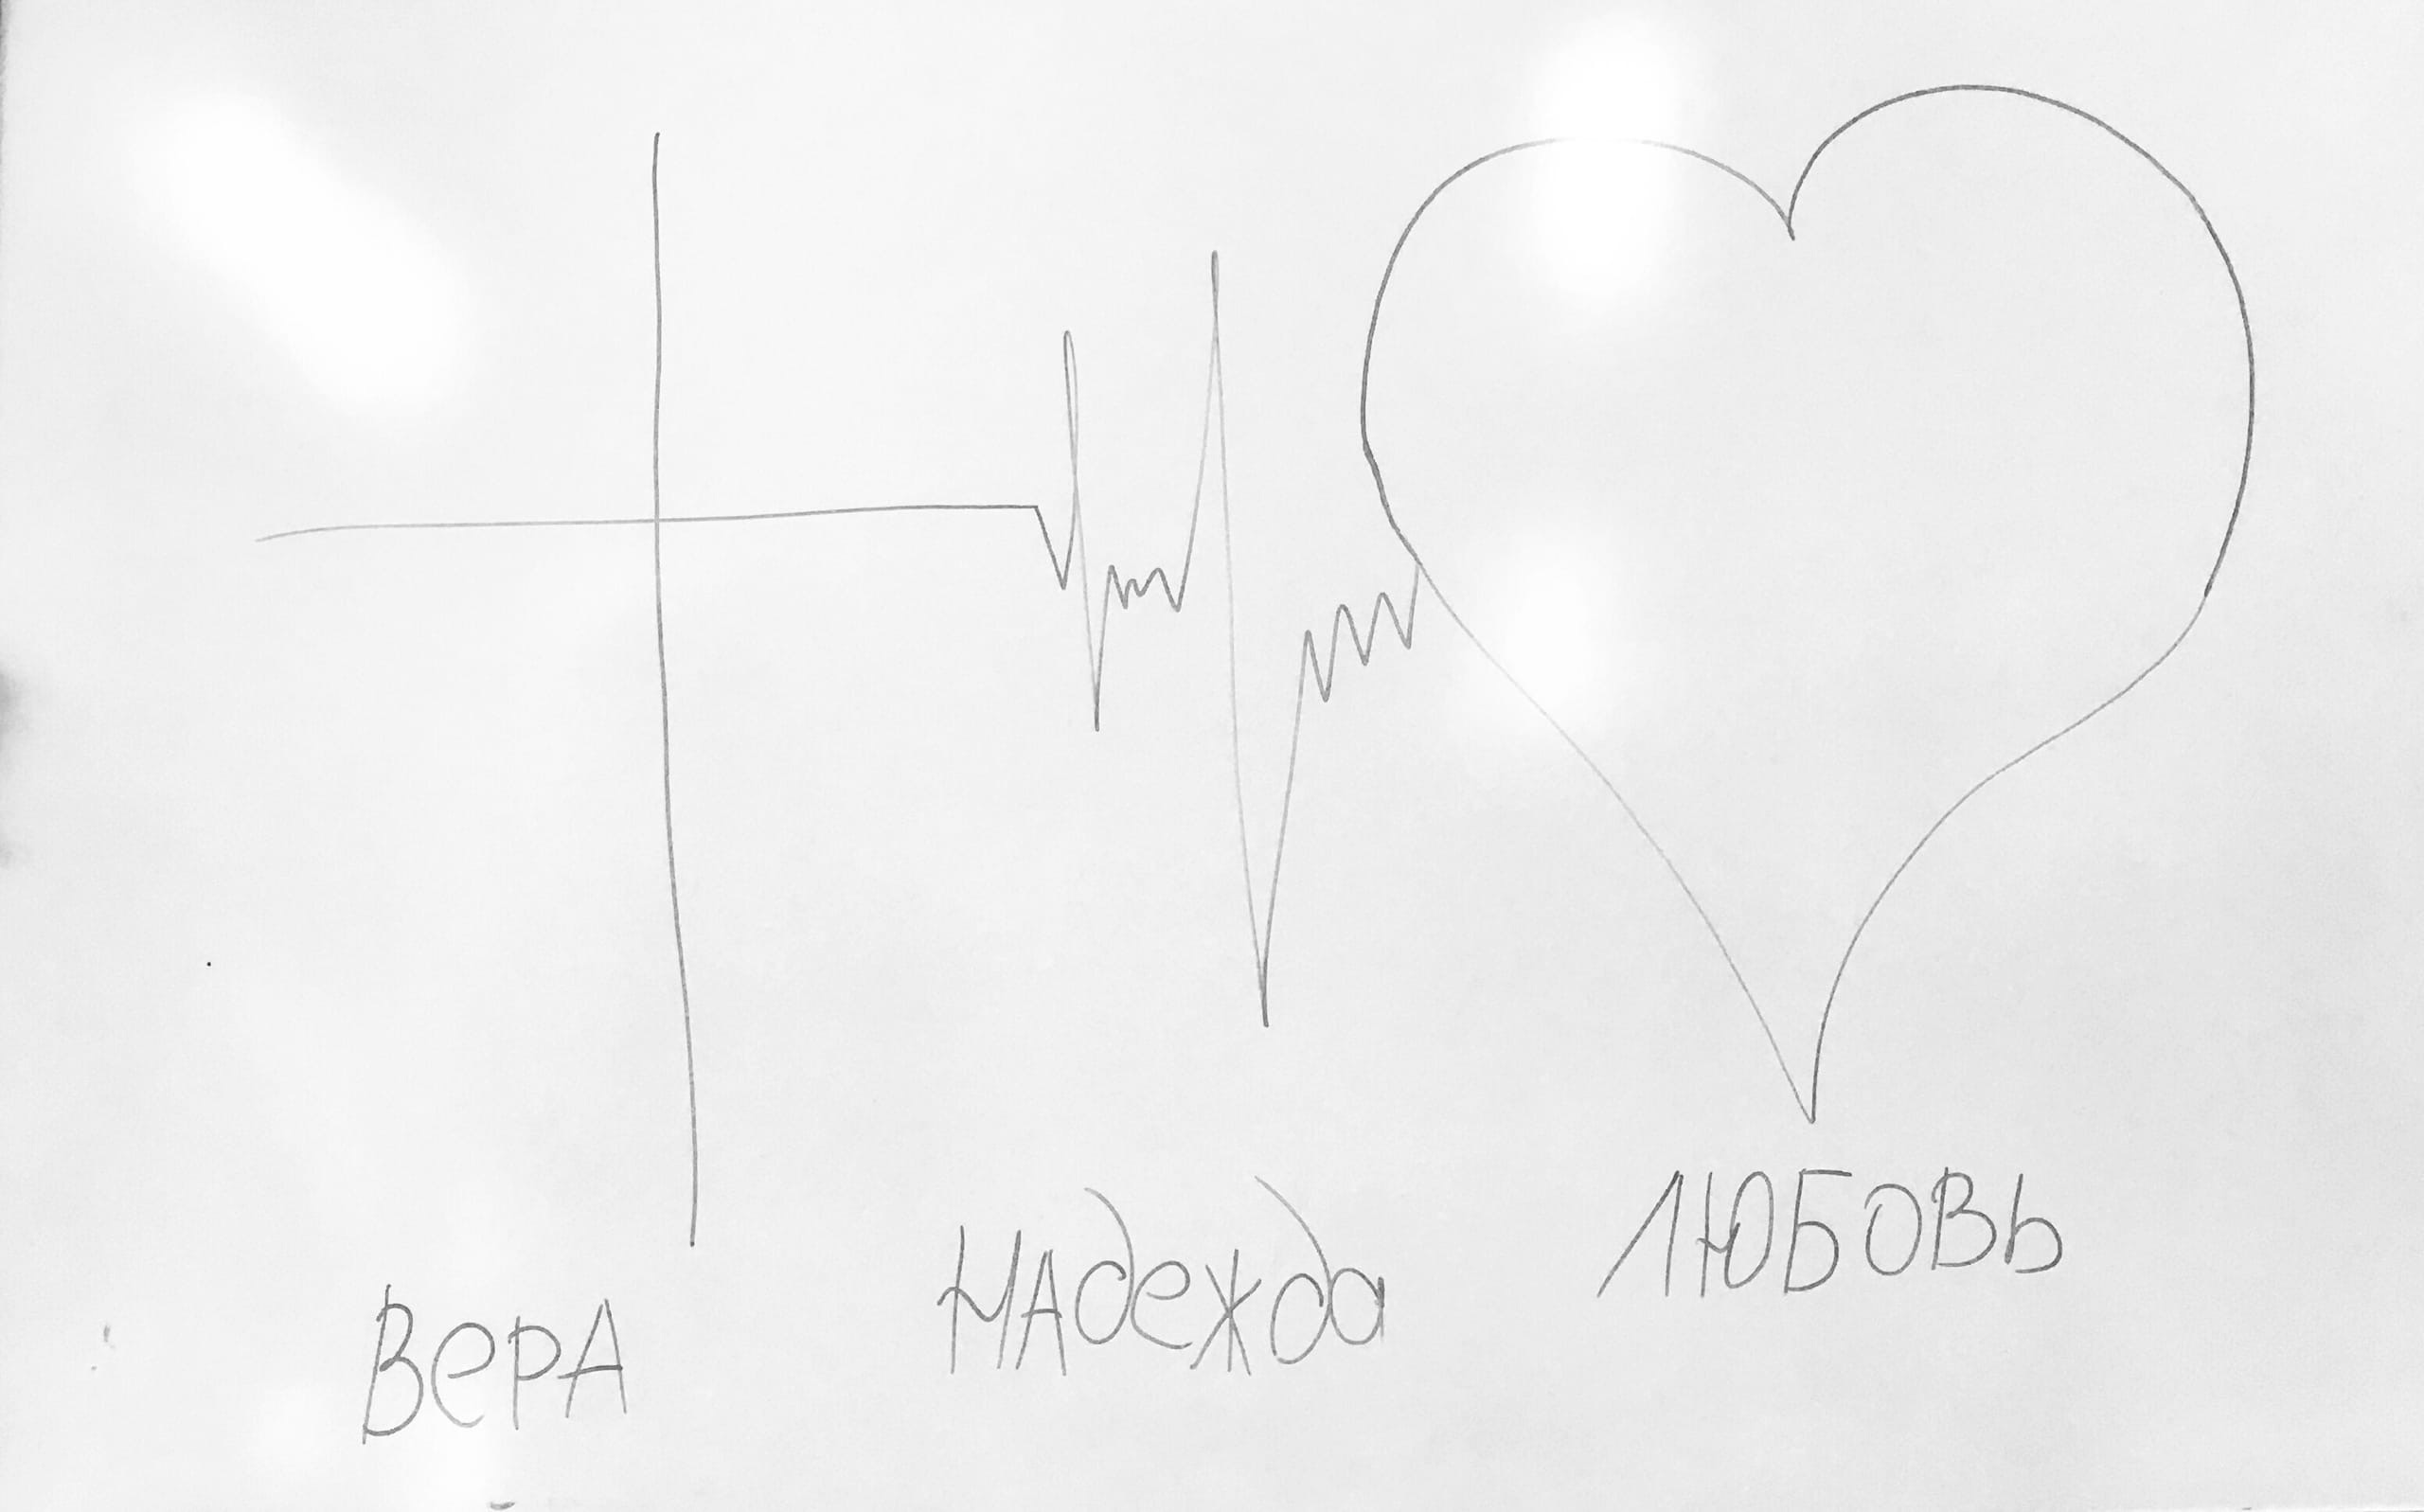 ВерА НАдежда ЛЮБОВЬ